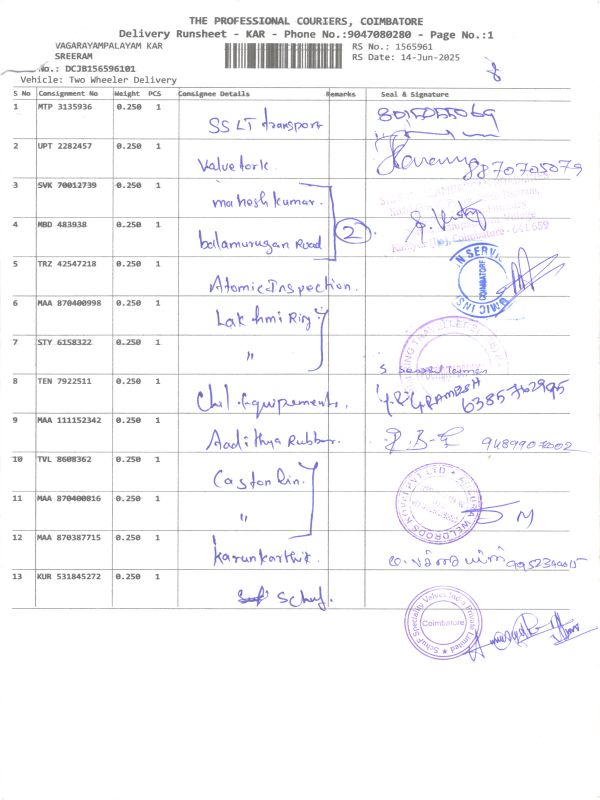 THE PROFESSIONAL COURIERS, COIMBATORE
Delivery Runsheet - KAR - Phone No.:9047080280 - Page No.:1
VAGARAYAMPALAYAM KAR RS No.: 1565961
SREERAM RS Date: 14-Jun-2025
No.: DCJB156596101
Vehicle: Two Wheeler Delivery
S No Consignment No Weight PCS Consignee Details Remarks Seal & Signature
1 MTP 3135936 0.250 1 SS LT transport 8015055069
2 UPT 2282457 0.250 1 Valvetork. 8870705079
3 SVK 70012739 0.250 1 mahesh kumar.
2
4 MBD 483938 0.250 1 balamurugan Road
5 TRZ 42547218 0.250 1 Atomic Inspection. COIMBATORE
6 MAA 870400998 0.250 1 Lakshmi Ring
7 STY 6158322 0.250 1 "
8 TEN 7922511 0.250 1 Equipements. 6385762995
9 MAA 111152342 0.250 1 Aadithya Rubber. 9489907002
10 TVL 8608362 0.250 1 Caston Rin.
11 MAA 870400816 0.250 1 "
12 MAA 870387715 0.250 1 karunkarthik.
13 KUR 531845272 0.250 1 Schuf.
Schuf Speciality Valves India Private Limited
Coimbatore